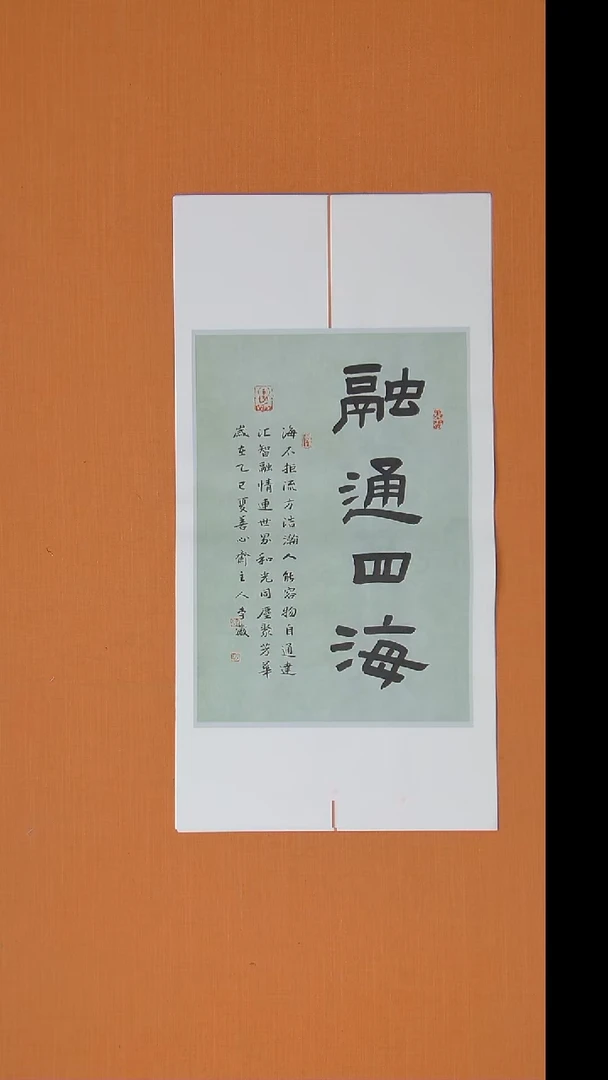 融通四海
海不拒流方浩瀚人能容物自通達
汇智融情連世界和光同塵聚芳華
歲在乙巳夏善心齋主人李